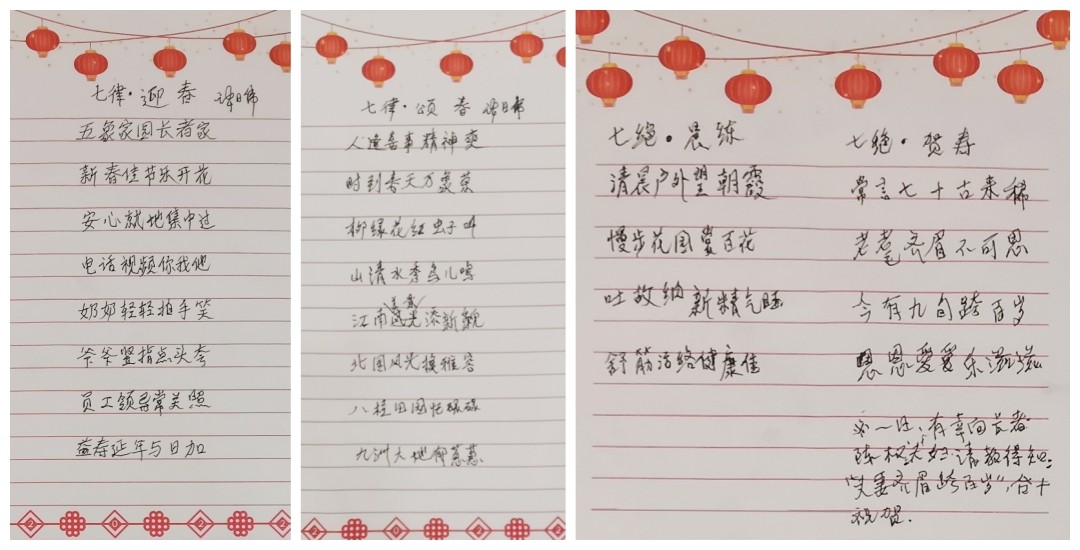 七律·迎春 谭日伟
五象家园长者家
新春佳节乐开花
安心就地集中过
电话视频你我他
奶奶轻轻拍手笑
爷爷竖指点头夸
员工领导常关照
益寿延年与日加
2 0 2 2
七律·颂春
人逢喜事精神爽
时到春天万象荣
柳绿花红虫子叫
山清水秀鸟儿鸣
江南 添新貌
北国风光换雅容
八桂田园
九洲大地郁葱葱
2 0 2 2
七绝·晨练
清晨户外望朝霞
慢步花园赏百花
吐故纳新精气
舒筋活络健康佳
七绝·贺寿
常言七十古来稀
老耄齐眉不可思
今有九旬跨百岁
恩恩爱爱乐滋滋
一注：有幸向长者
陈 夫妇请教得知：
"夫妻齐眉跨百岁"，
祝贺.